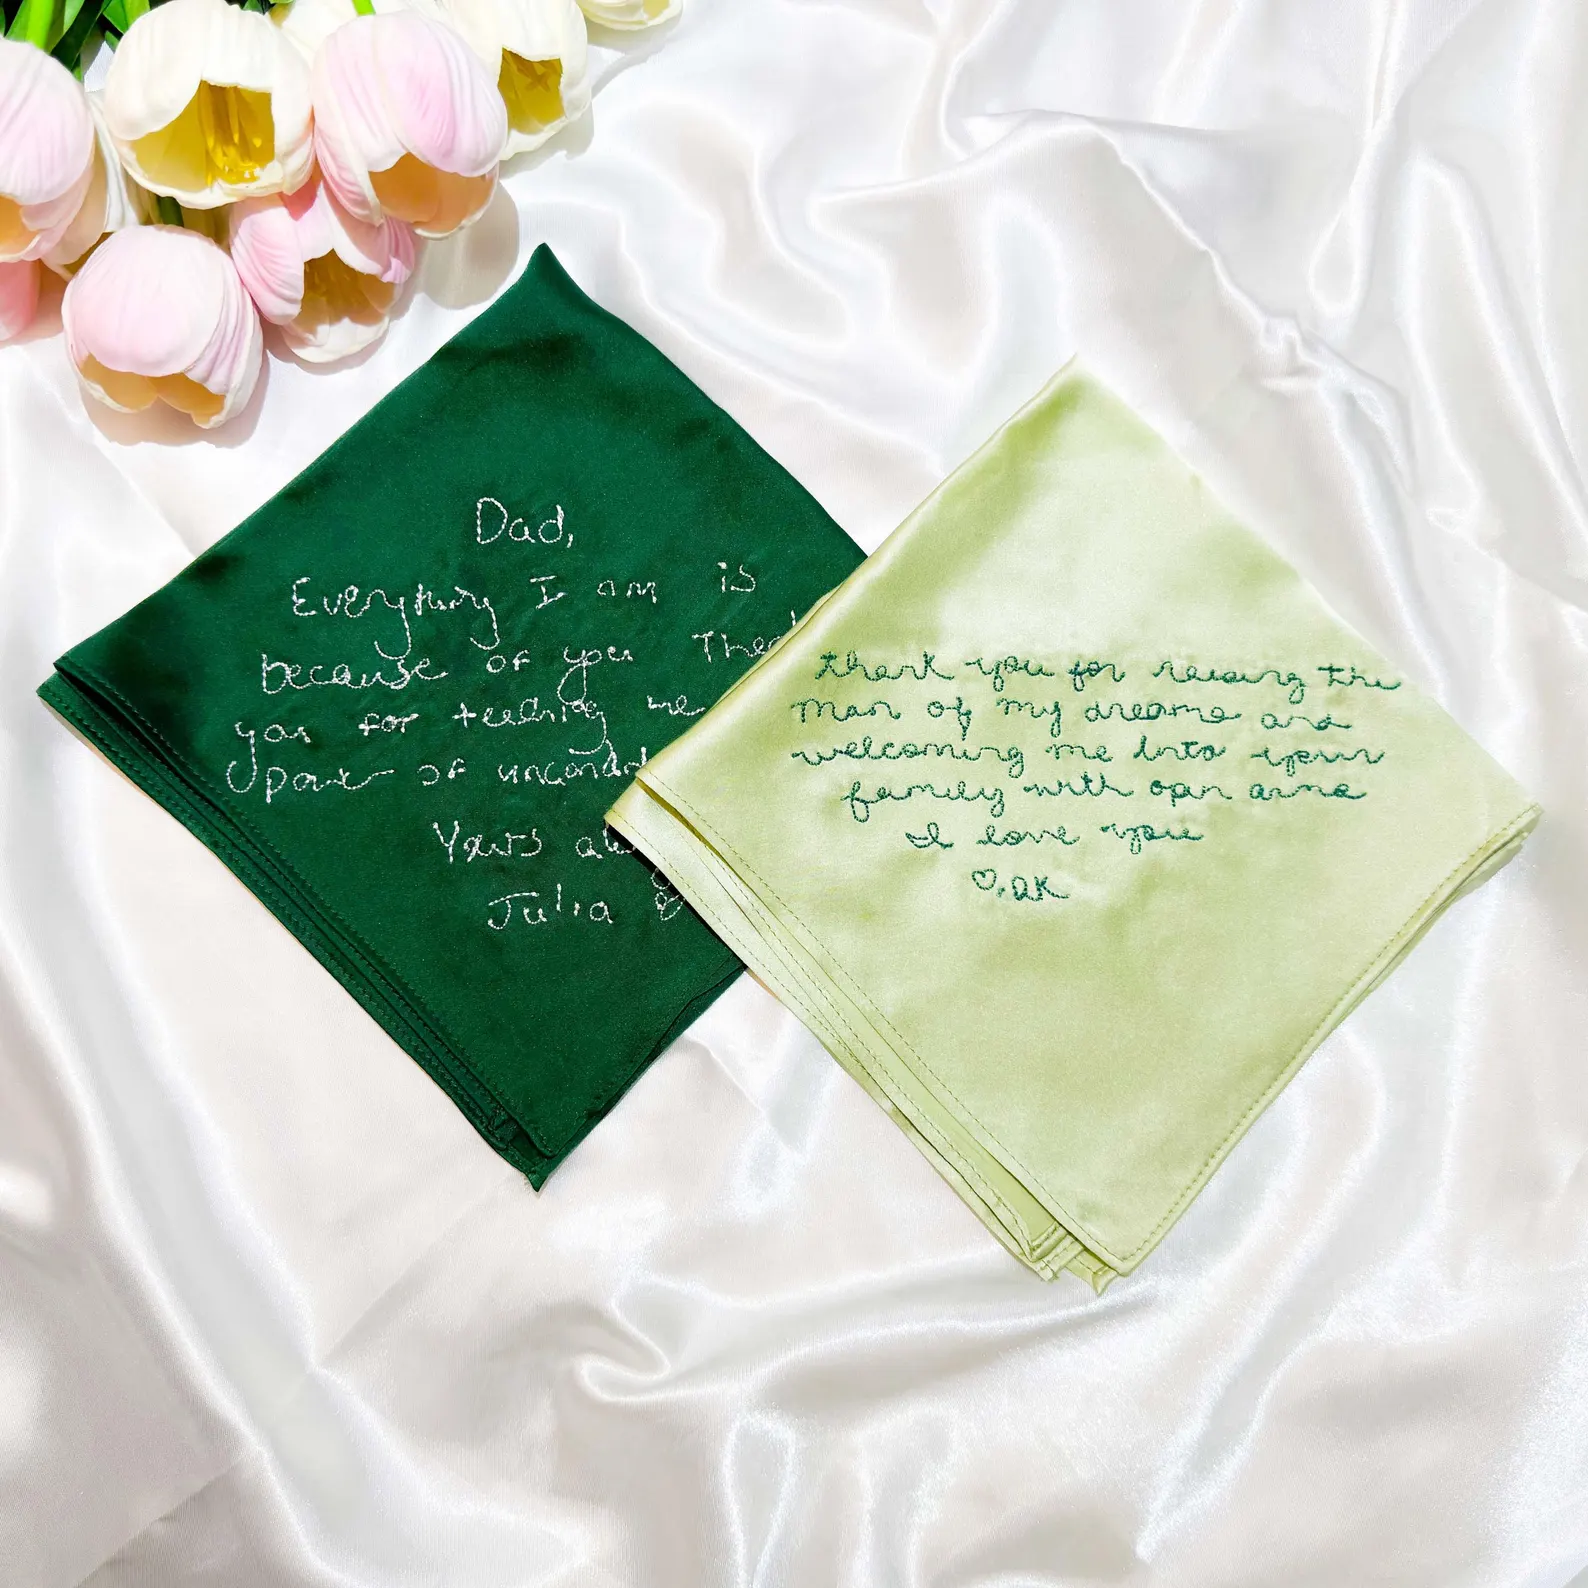 Dad,
Everything I am is
because of you Than
you for teaching me
part of uncondit
Yours al
Julia
thank you for raising the
man of my dreams and
welcoming me into your
family with open arms
I love you
♡, AK